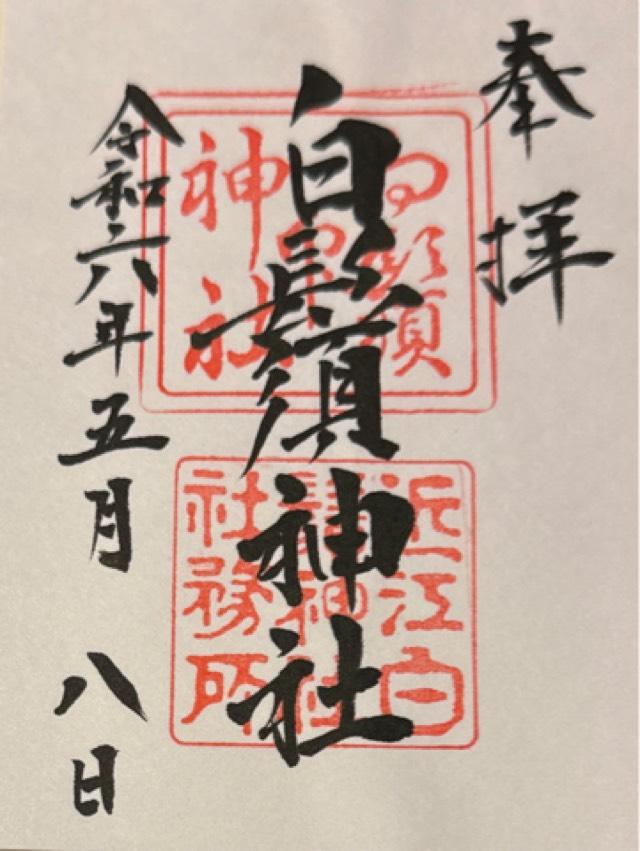 奉拝
白鬚神社
令和六年五月八日
近江白
鬚神社
社務所